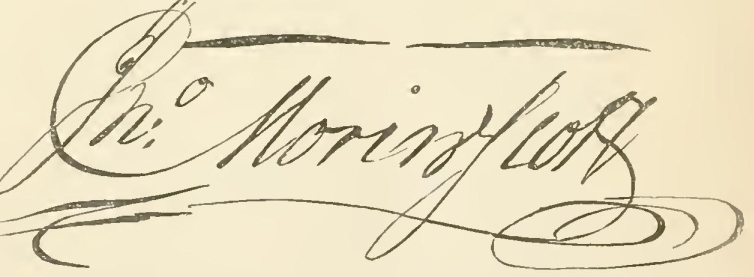 Jno. Morin Scott